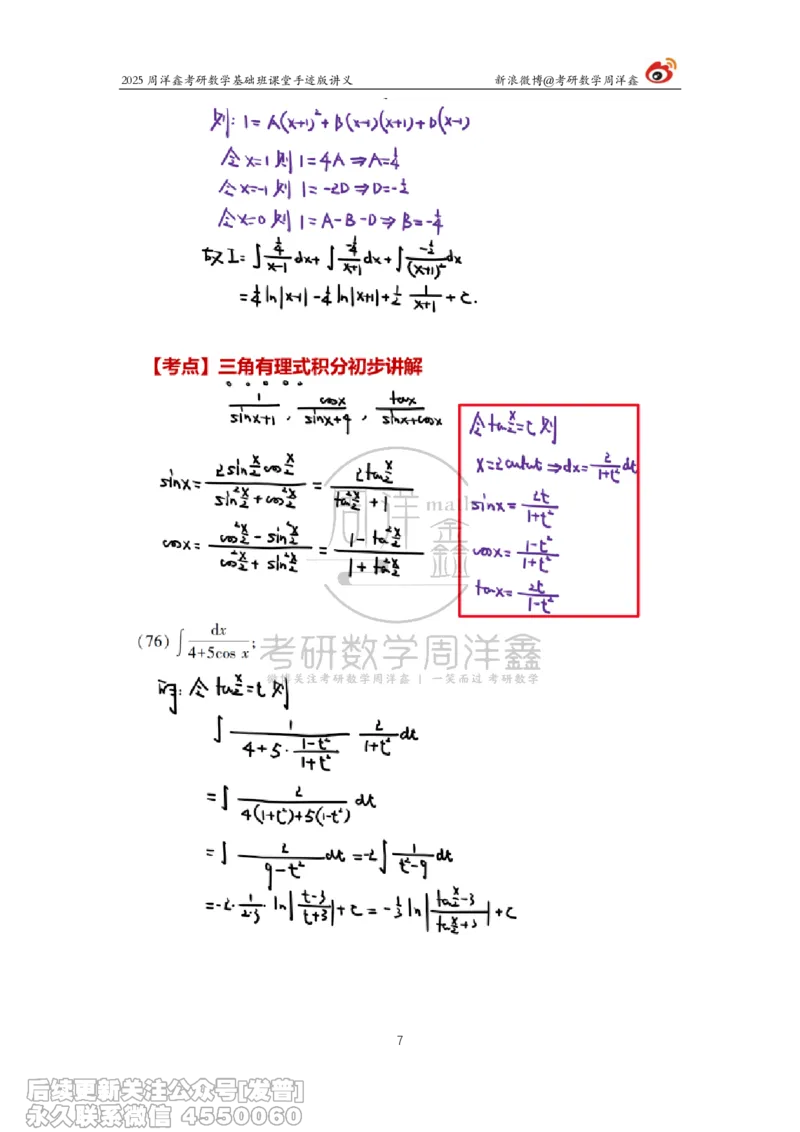 2025 周洋鑫考研数学基础班课堂手迹版讲义 新浪微博@考研数学周洋鑫
则: 1=A(x+1)²+B(x-1)(x+1)+D(x-1)
令x=1则 1=4A⇒A=1/4
令x=-1则 1=-2D⇒D=-1/2
令x=0则 1=A-B-D⇒B=-1/4
故I=∫ (1/4)/(x-1) dx+∫ (-1/4)/(x+1) dx+∫ (-1/2)/(x+1)² dx
=1/4 ln|x-1|-1/4 ln|x+1|+1/2 · 1/(x+1)+C.
【考点】三角有理式积分初步讲解
1/(sinx+1), cosx/(sinx+4), tanx/(sinx+cosx)
sinx= (2sin x/2 cos x/2)/(sin² x/2+cos² x/2) = (2tan x/2)/(tan² x/2+1)
cosx= (cos² x/2-sin² x/2)/(cos² x/2+sin² x/2) = (1-tan² x/2)/(1+tan² x/2)
令tan x/2=t则
x=2arctant⇒dx=2/(1+t²) dt
sinx=2t/(1+t²)
cosx=(1-t²)/(1+t²)
tanx=2t/(1-t²)
周洋鑫 math
(76) ∫ dx/(4+5cos x);
考研数学周洋鑫
微博关注考研数学周洋鑫 | 一笑而过 考研数学
解: 令tan x/2=t则
∫ 1/(4+5·(1-t²)/(1+t²)) 2/(1+t²) dt
=∫ 2/(4(1+t²)+5(1-t²)) dt
=∫ 2/(9-t²) dt=-2∫ 1/(t²-9) dt
=-2· 1/(2·3) · ln|(t-3)/(t+3)|+C=-1/3 ln|(tan x/2-3)/(tan x/2+3)|+C
7
后续更新关注公众号[发普]
永久联系微信 4550060